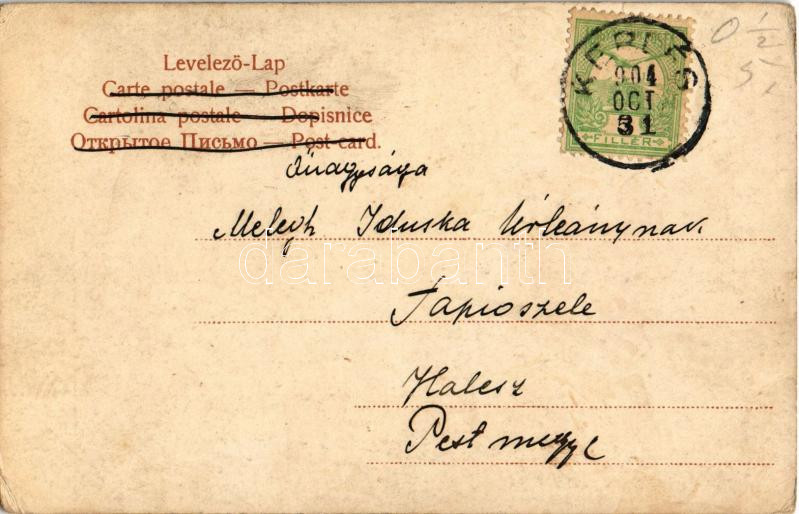 Levelező-Lap
Carte postale — Postkarte
Cartolina postale — Dopisnice
Открытое Письмо — Post-card.
Őnagysága
Melegh Iduska Úrleánynak
Tapioszele
Halesz
Pest megye
904
OCT
31
FILLÉR
0 1/2
5,
darabanth